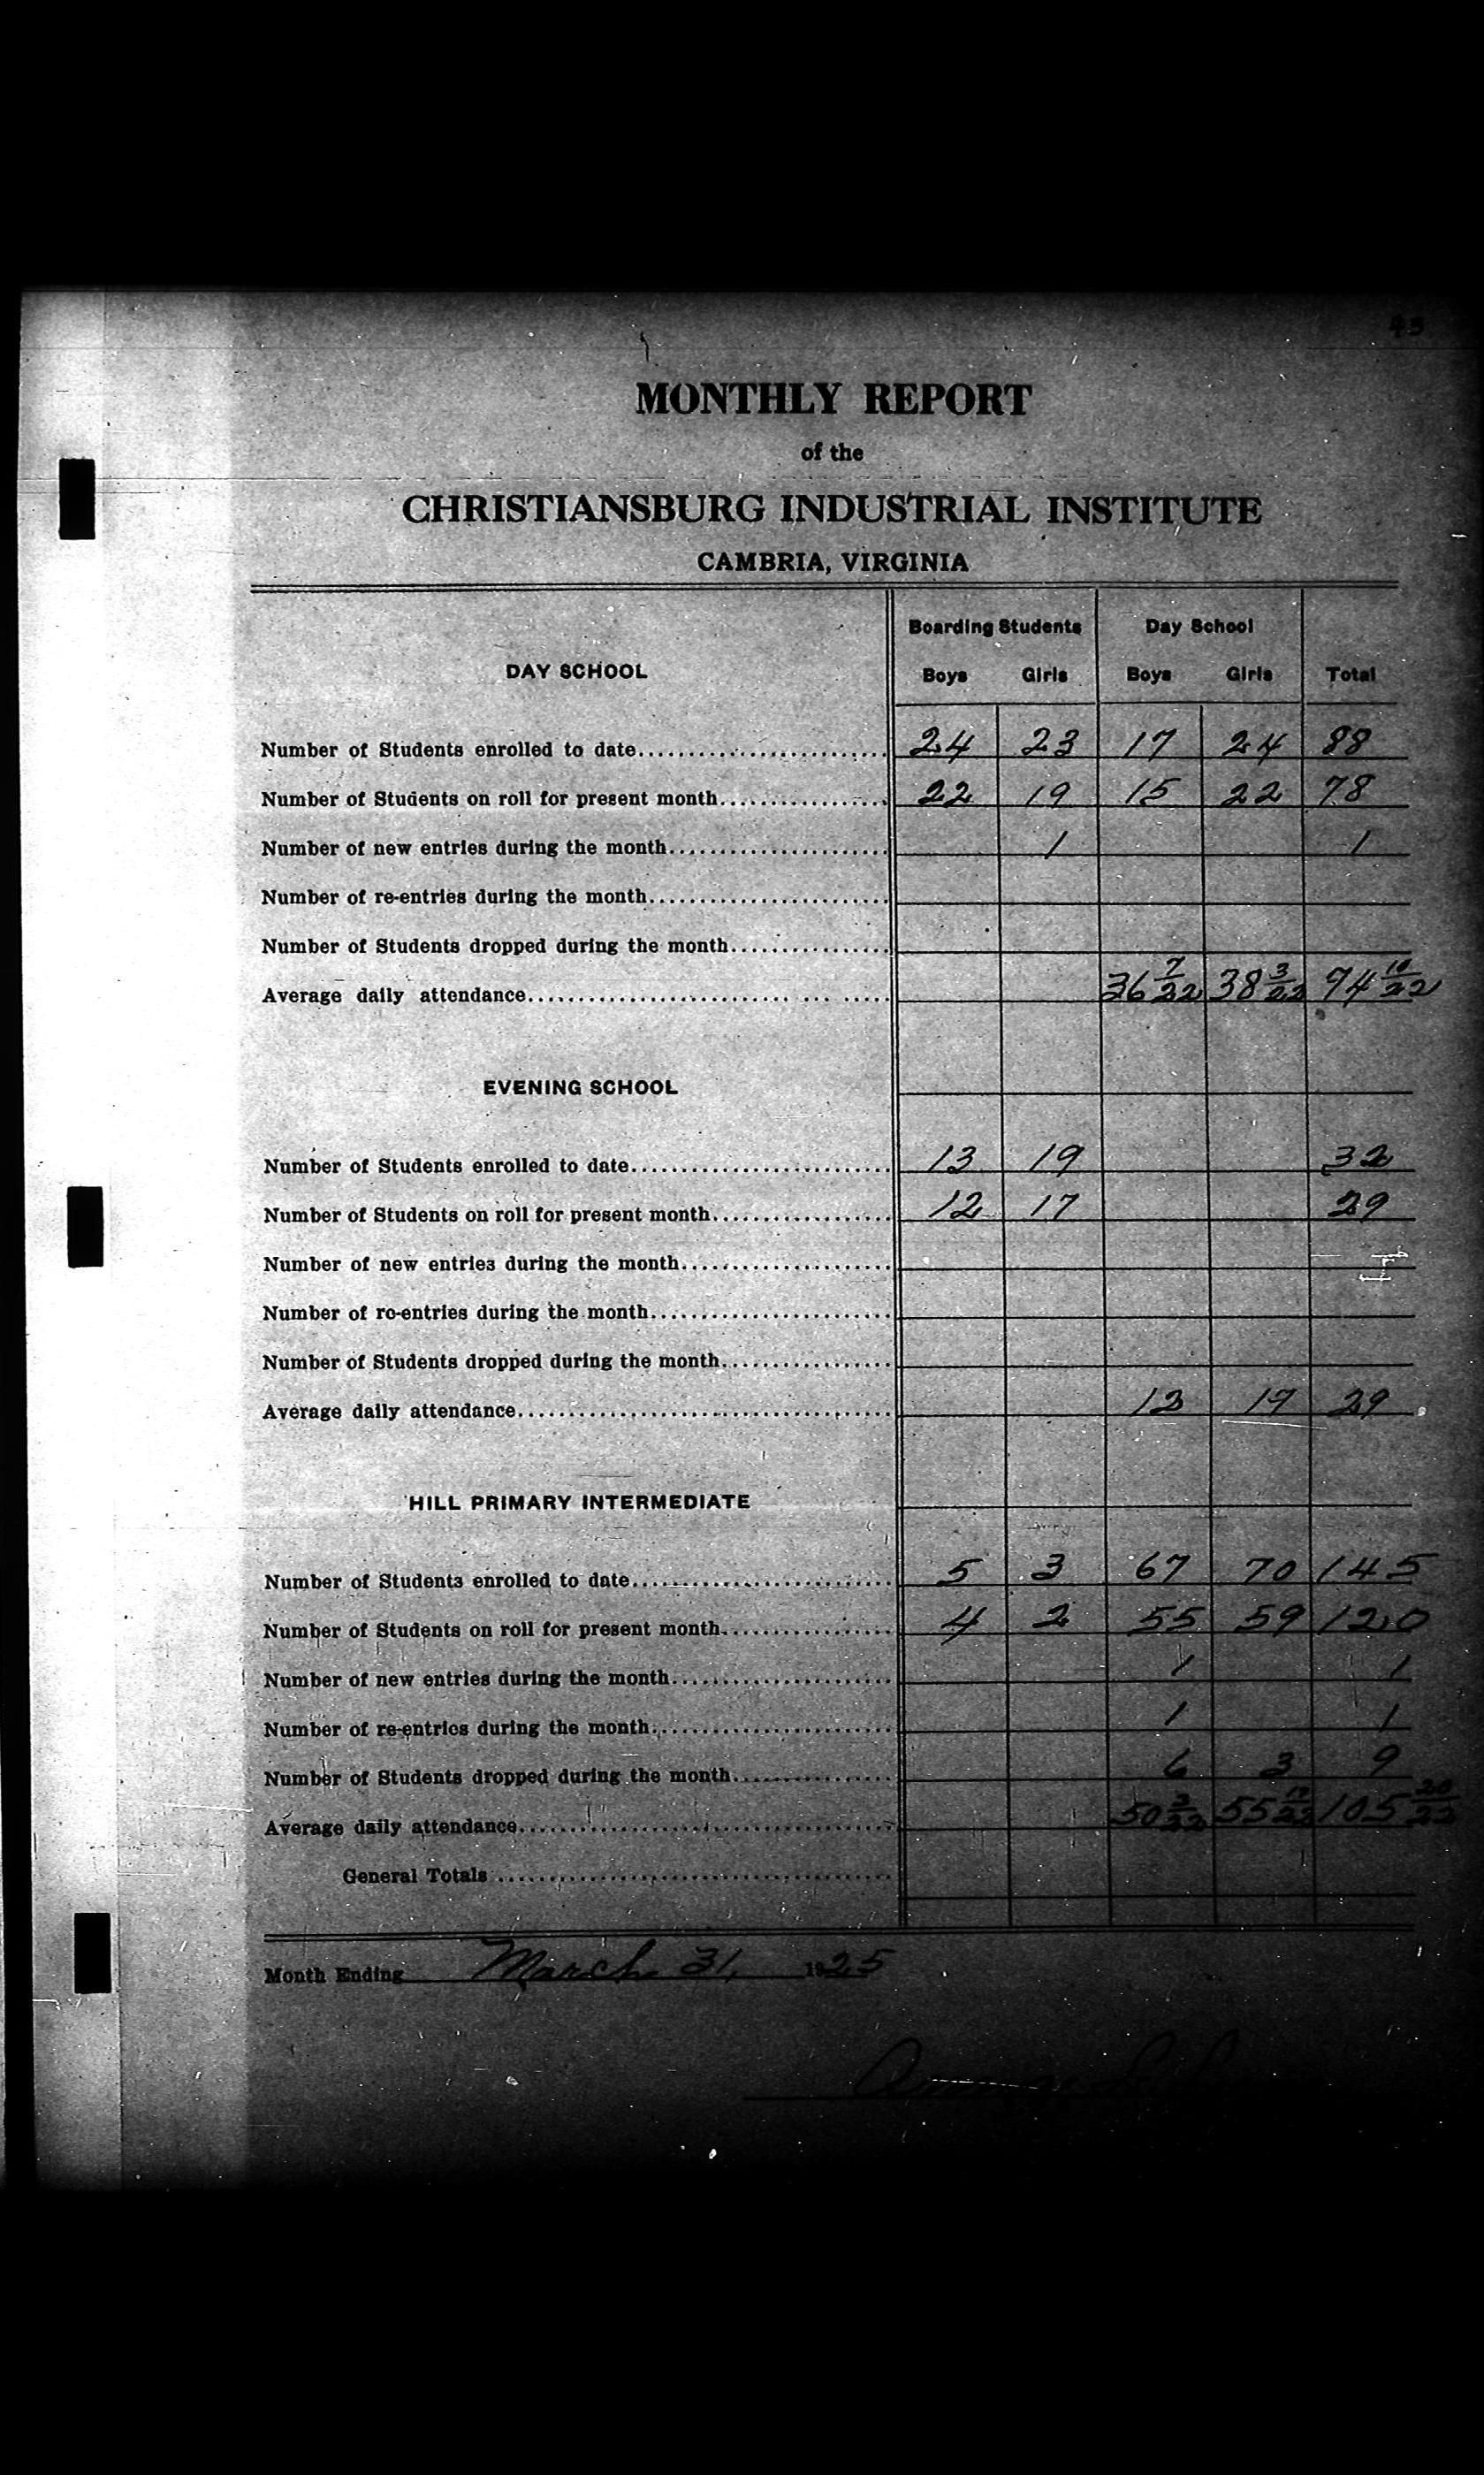 43
MONTHLY REPORT
of the
CHRISTIANSBURG INDUSTRIAL INSTITUTE
CAMBRIA, VIRGINIA
Boarding Students Day School
DAY SCHOOL Boys Girls Boys Girls Total
Number of Students enrolled to date 24 23 17 24 88
Number of Students on roll for present month 22 19 15 22 78
Number of new entries during the month 1 1
Number of re-entries during the month
Number of Students dropped during the month
Average daily attendance 36 7/22 38 3/22 74 10/22
EVENING SCHOOL
Number of Students enrolled to date 13 19 32
Number of Students on roll for present month 12 17 29
Number of new entries during the month
Number of re-entries during the month
Number of Students dropped during the month
Average daily attendance 12 17 29
HILL PRIMARY INTERMEDIATE
Number of Students enrolled to date 5 3 67 70 145
Number of Students on roll for present month 4 2 55 59 120
Number of new entries during the month 1 1
Number of re-entries during the month 1 1
Number of Students dropped during the month 6 3 9
Average daily attendance 50 55 105 20/22
General Totals
Month Ending March 31, 1925